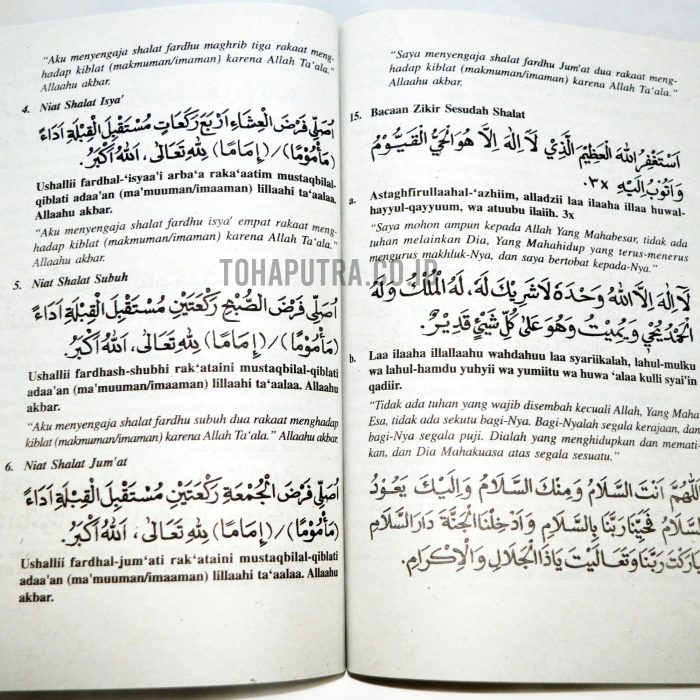 "Aku menyengaja shalat fardhu maghrib tiga rakaat meng-
hadap kiblat (makmuman/imaman) karena Allah Ta'ala."
Allaahu akbar.
4. Niat Shalat Isya'
اُصَلِّى فَرْضَ الْعِشَاءِ اَرْبَعَ رَكَعَاتٍ مُسْتَقْبِلَ الْقِبْلَةِ اَدَاءً
(مَأْمُوْمًا)/(اِمَامًا) لِلّٰهِ تَعَالَى، اَللهُ اَكْبَرُ.
Ushallii fardhal-'isyaa'i arba'a raka'aatim mustaqbilal-
qiblati adaa'an (ma'muuman/imaaman) lillaahi ta'aalaa.
Allaahu akbar.
"Aku menyengaja shalat fardhu isya' empat rakaat meng-
hadap kiblat (makmuman/imaman) karena Allah Ta'ala."
Allaahu akbar.
5. Niat Shalat Subuh
اُصَلِّى فَرْضَ الصُّبْحِ رَكْعَتَيْنِ مُسْتَقْبِلَ الْقِبْلَةِ اَدَاءً
(مَأْمُوْمًا)/(اِمَامًا) لِلّٰهِ تَعَالَى، اَللهُ اَكْبَرُ.
Ushallii fardhash-shubhi rak'ataini mustaqbilal-qiblati
adaa'an (ma'muuman/imaaman) lillaahi ta'aalaa. Allaahu
akbar.
"Aku menyengaja shalat fardhu subuh dua rakaat menghadap
kiblat (makmuman/imaman) karena Allah Ta'ala." Allaahu akbar.
6. Niat Shalat Jum'at
اُصَلِّى فَرْضَ الْجُمْعَةِ رَكْعَتَيْنِ مُسْتَقْبِلَ الْقِبْلَةِ اَدَاءً
(مَأْمُوْمًا)/(اِمَامًا) لِلّٰهِ تَعَالَى، اَللهُ اَكْبَرُ.
Ushallii fardhal-jum'ati rak'ataini mustaqbilal-qiblati
adaa'an (ma'muuman/imaaman) lillaahi ta'aalaa. Allaahu
akbar.
TOHAPUTRA.CO.ID
"Saya menyengaja shalat fardhu Jum'at dua rakaat meng-
hadap kiblat (makmuman/imaman) karena Allah Ta'ala."
Allaahu akbar.
15. Bacaan Zikir Sesudah Shalat
اَسْتَغْفِرُ اللهَ الْعَظِيْمَ الَّذِيْ لَآ اِلٰهَ اِلَّا هُوَ الْحَيُّ الْقَيُّوْمُ
وَاَتُوْبُ اِلَيْهِ ×٣.
a. Astaghfirullaahal-'azhiim, alladzii laa ilaaha illaa huwal-
hayyul-qayyuum, wa atuubu ilaiih. 3x
"Saya mohon ampun kepada Allah Yang Mahabesar, tidak ada
tuhan melainkan Dia, Yang Mahahidup yang terus-menerus
mengurus makhluk-Nya, dan saya bertobat kepada-Nya."
لَآ اِلٰهَ اِلَّا اللهُ وَحْدَهُ لَا شَرِيْكَ لَهُ، لَهُ الْمُلْكُ وَلَهُ
الْحَمْدُ يُحْيِيْ وَيُمِيْتُ وَهُوَ عَلٰى كُلِّ شَيْئٍ قَدِيْرٌ.
b. Laa ilaaha illallaahu wahdahuu laa syariikalah, lahul-mulku
wa lahul-hamdu yuhyii wa yumiitu wa huwa 'alaa kulli syai'in
qadiir.
"Tidak ada tuhan yang wajib disembah kecuali Allah, Yang Maha
Esa, tidak ada sekutu bagi-Nya. Bagi-Nyalah segala kerajaan, dan
bagi-Nya segala puji. Dialah yang menghidupkan dan memati-
kan, dan Dia Mahakuasa atas segala sesuatu."
اَللّٰهُمَّ اَنْتَ السَّلَامُ وَمِنْكَ السَّلَامُ وَاِلَيْكَ يَعُوْدُ
السَّلَامُ فَحَيِّنَا رَبَّنَا بِالسَّلَامِ وَاَدْخِلْنَا الْجَنَّةَ دَارَ السَّلَامِ
تَبَارَكْتَ رَبَّنَا وَتَعَالَيْتَ يَاذَا الْجَلَالِ وَالْاِكْرَامِ.